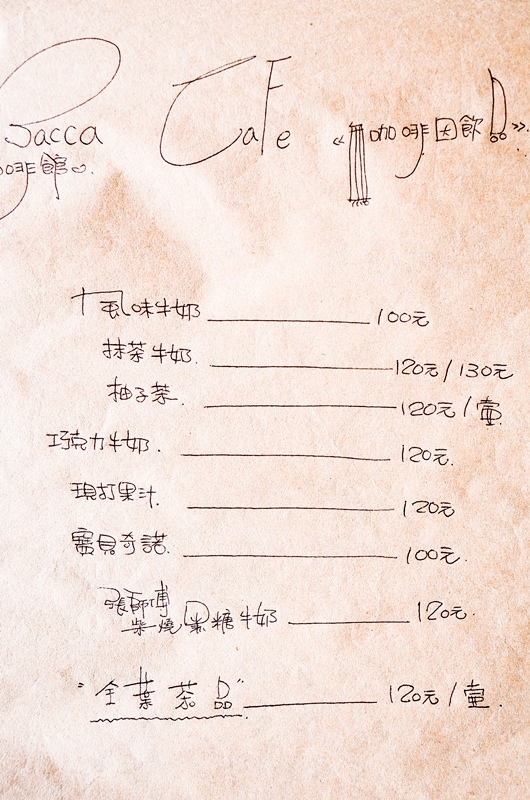 Sacca Cafe 《無咖啡因飲品》
啡館
風味牛奶 100元
抹茶牛奶. 120元/130元
柚子茶. 120元/壺.
巧克力牛奶. 120元.
現打果汁. 120元
寶貝奇諾. 100元.
張師傅
柴燒黑糖牛奶 120元.
"全葉茶品" 120元/壺.